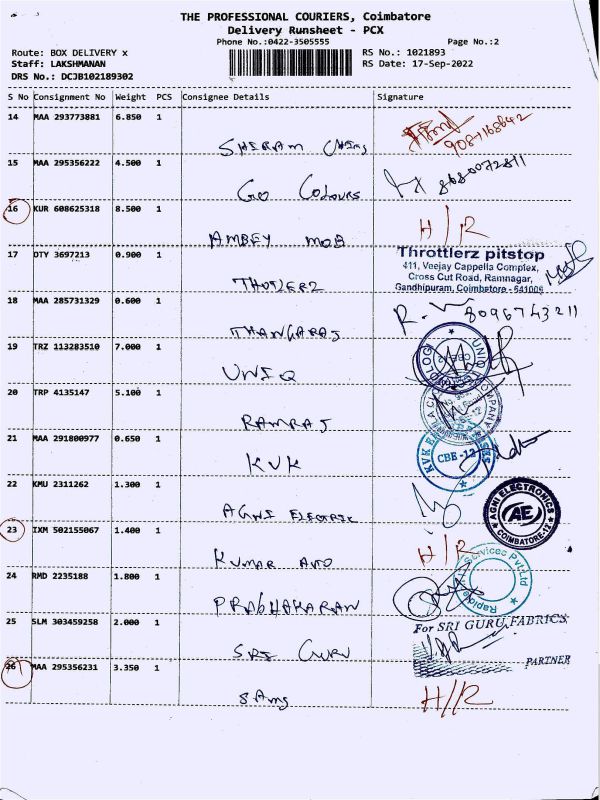 THE PROFESSIONAL COURIERS, Coimbatore
Delivery Runsheet - PCX
Phone No.:0422-3505555 Page No.:2
Route: BOX DELIVERY x RS No.: 1021893
Staff: LAKSHMANAN RS Date: 17-Sep-2022
DRS No.: DCJB102189302
S No Consignment No Weight PCS Consignee Details Signature
14 MAA 293773881 6.850 1
SHIRAM
15 MAA 295356222 4.500 1
GO Colours
16 KUR 608625318 8.500 1 H/R
AMBEY MOB
17 DTY 3697213 0.900 1 Throttlerz pitstop
411, Veejay Cappella Complex,
Cross Cut Road, Ramnagar,
Gandhipuram, Coimbatore - 641009
THOTLERZ
18 MAA 285731329 0.600 1 8096743211
THANGARAJ
19 TRZ 113283510 7.000 1
UNIQ
20 TRP 4135147 5.100 1
RAMRAJ
21 MAA 291800977 0.650 1 CBE-12
KVK
22 KMU 2311262 1.300 1 AGNI ELECTRONICS
AE
COIMBATORE-12
AGNI ELECTRIC
23 IXM 502155067 1.400 1 H/R
KUMAR AUTO
24 RMD 2235188 1.800 1
PRABHAKARAN
25 SLM 303459258 2.000 1 For SRI GURU FABRICS
SRI GURU PARTNER
26 MAA 295356231 3.350 1 H/R
SAMS